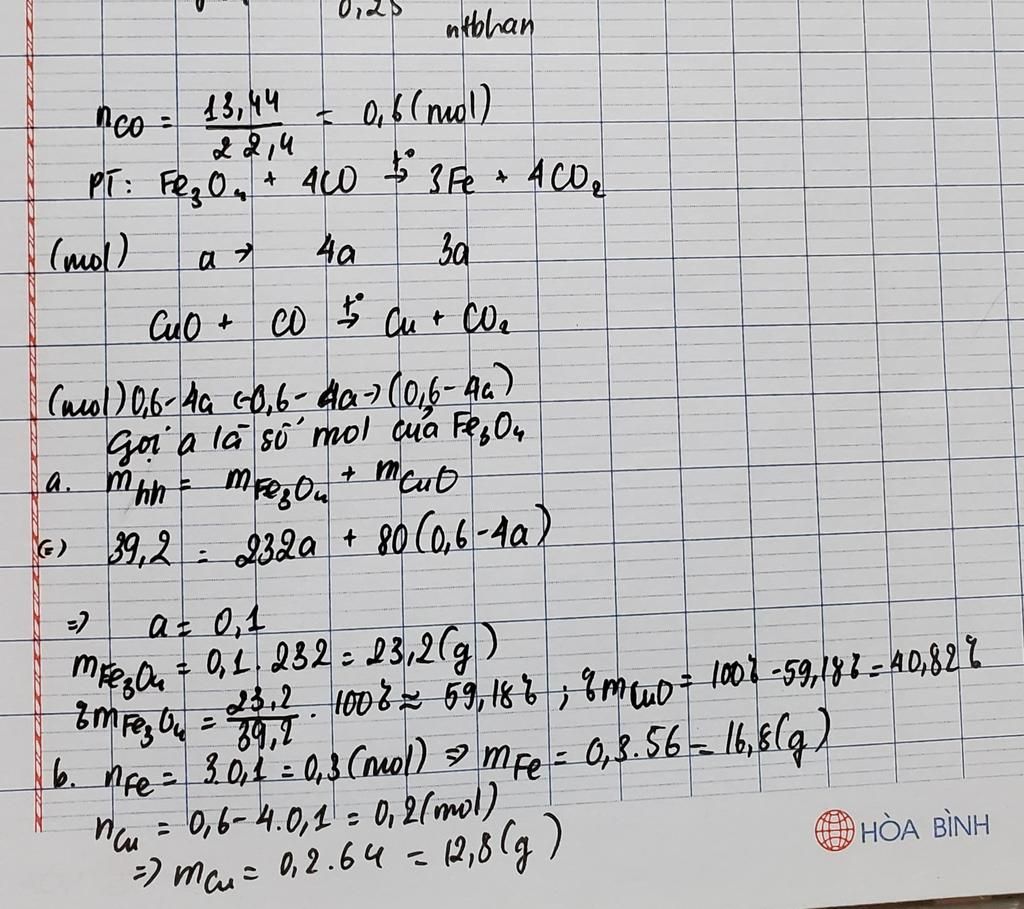 0,25
ntbhan
nCO = 13,44/22,4 = 0,6 (mol)
PT: Fe₃O₄ + 4CO →t° 3Fe + 4CO₂
(mol) a → 4a 3a
CuO + CO →t° Cu + CO₂
(mol) 0,6-4a ←0,6-4a→ (0,6-4a)
Gọi a là số mol của Fe₃O₄
a. mhh = mFe₃O₄ + mCuO
(=) 39,2 = 232a + 80(0,6-4a)
=> a = 0,1
mFe₃O₄ = 0,1.232 = 23,2(g)
%mFe₃O₄ = 23,2/39,2 . 100% ≈ 59,18% ; %mCuO = 100% - 59,18% = 40,82%
b. nFe = 3.0,1 = 0,3(mol) => mFe = 0,3.56 = 16,8(g)
nCu = 0,6-4.0,1 = 0,2(mol)
=> mCu = 0,2.64 = 12,8(g)
HÒA BÌNH